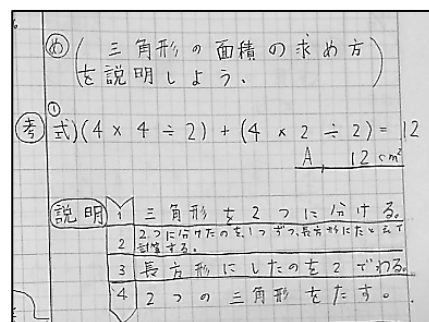 め 三角形の面積の求め方
を説明しよう、
①
考 式)(4×4÷2)+(4×2÷2)=12
A, 12cm²
説明 1 三角形を2つに分ける。
2 2つに分けたのを、1つずつ、長方形にたとえて
計算する。
3 長方形にしたのを2でわる。
4 2つの三角形をたす。